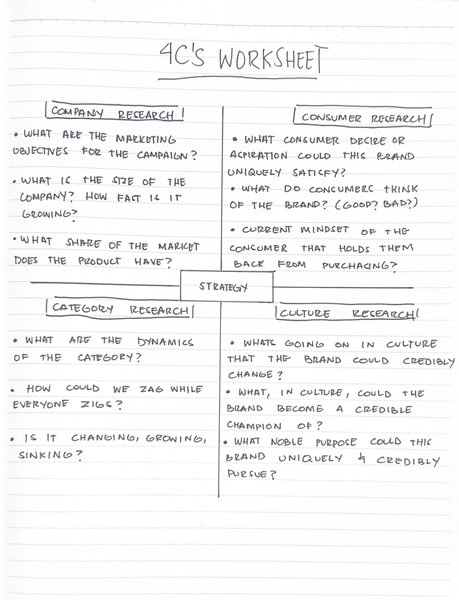 4C'S WORKSHEET
COMPANY RESEARCH
• WHAT ARE THE MARKETING
OBJECTIVES FOR THE CAMPAIGN?
• WHAT IS THE SIZE OF THE
COMPANY? HOW FAST IS IT
GROWING?
• WHAT SHARE OF THE MARKET
DOES THE PRODUCT HAVE?
CONSUMER RESEARCH
• WHAT CONSUMER DESIRE OR
ASPIRATION COULD THIS BRAND
UNIQUELY SATISFY?
• WHAT DO CONSUMERS THINK
OF THE BRAND? (GOOD? BAD?)
• CURRENT MINDSET OF THE
CONSUMER THAT HOLDS THEM
BACK FROM PURCHASING?
STRATEGY
CATEGORY RESEARCH
• WHAT ARE THE DYNAMICS
OF THE CATEGORY?
• HOW COULD WE ZAG WHILE
EVERYONE ZIGS?
• IS IT CHANGING, GROWING,
SINKING?
CULTURE RESEARCH
• WHATS GOING ON IN CULTURE
THAT THE BRAND COULD CREDIBLY
CHANGE?
• WHAT, IN CULTURE, COULD THE
BRAND BECOME A CREDIBLE
CHAMPION OF?
• WHAT NOBLE PURPOSE COULD THIS
BRAND UNIQUELY & CREDIBLY
PURSUE?